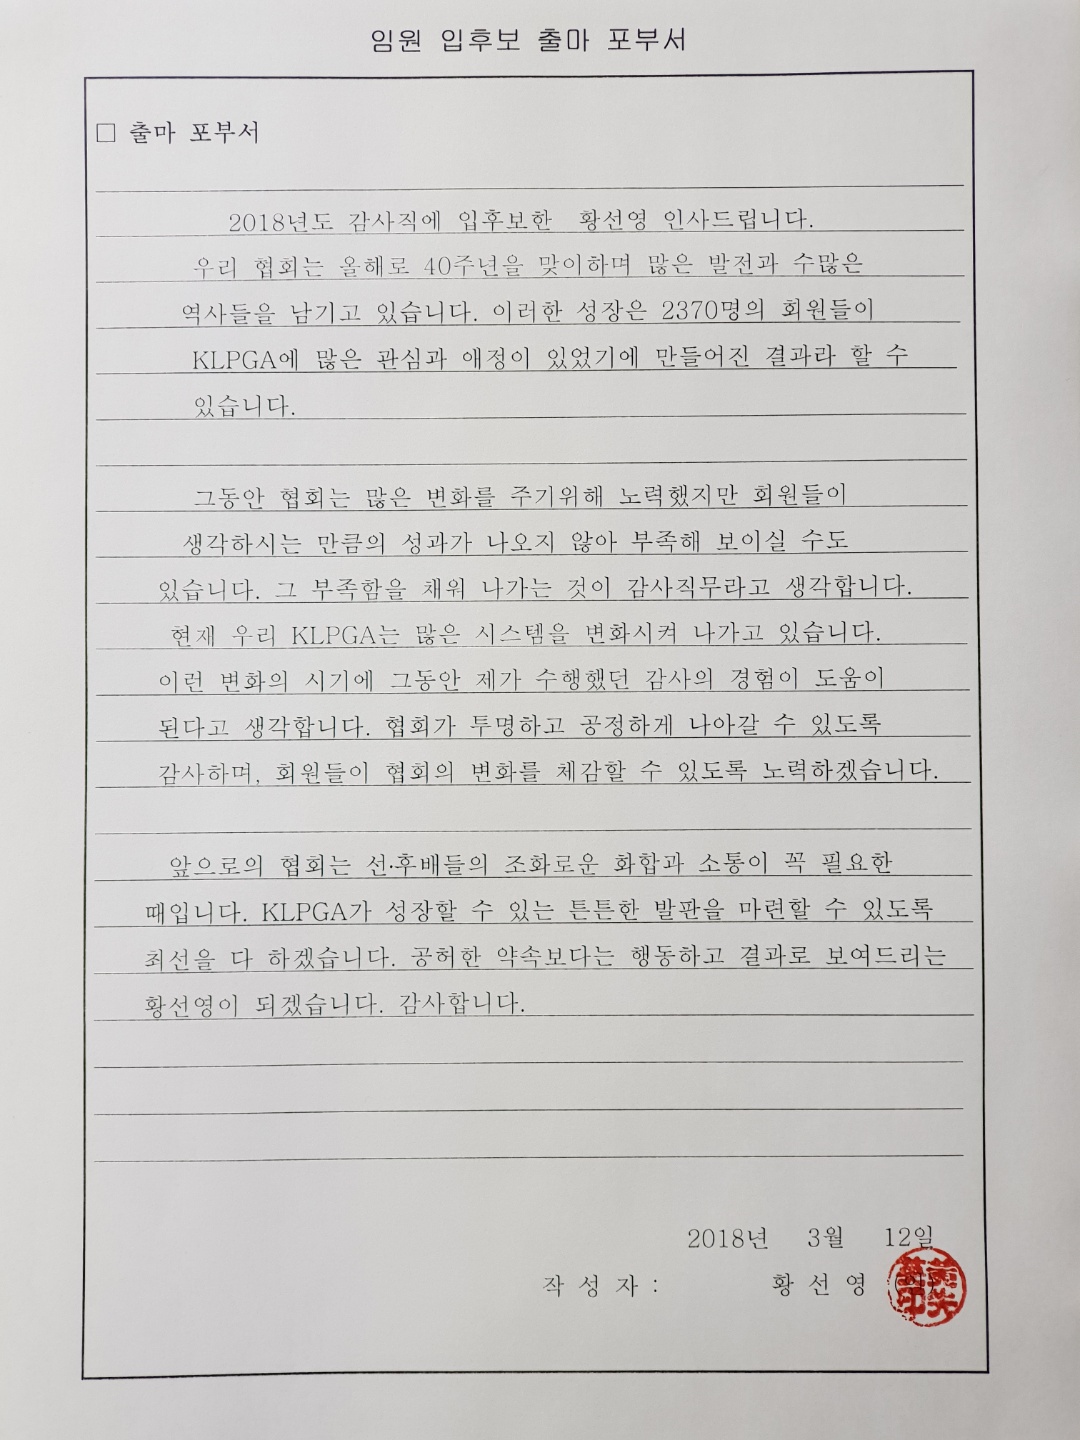 임원 입후보 출마 포부서
□ 출마 포부서
2018년도 감사직에 입후보한 황선영 인사드립니다.
우리 협회는 올해로 40주년을 맞이하며 많은 발전과 수많은
역사들을 남기고 있습니다. 이러한 성장은 2370명의 회원들이
KLPGA에 많은 관심과 애정이 있었기에 만들어진 결과라 할 수
있습니다.
그동안 협회는 많은 변화를 주기위해 노력했지만 회원들이
생각하시는 만큼의 성과가 나오지 않아 부족해 보이실 수도
있습니다. 그 부족함을 채워 나가는 것이 감사직무라고 생각합니다.
현재 우리 KLPGA는 많은 시스템을 변화시켜 나가고 있습니다.
이런 변화의 시기에 그동안 제가 수행했던 감사의 경험이 도움이
된다고 생각합니다. 협회가 투명하고 공정하게 나아갈 수 있도록
감사하며, 회원들이 협회의 변화를 체감할 수 있도록 노력하겠습니다.
앞으로의 협회는 선·후배들의 조화로운 화합과 소통이 꼭 필요한
때입니다. KLPGA가 성장할 수 있는 튼튼한 발판을 마련할 수 있도록
최선을 다 하겠습니다. 공허한 약속보다는 행동하고 결과로 보여드리는
황선영이 되겠습니다. 감사합니다.
2018년 3월 12일
작 성 자 : 황 선 영